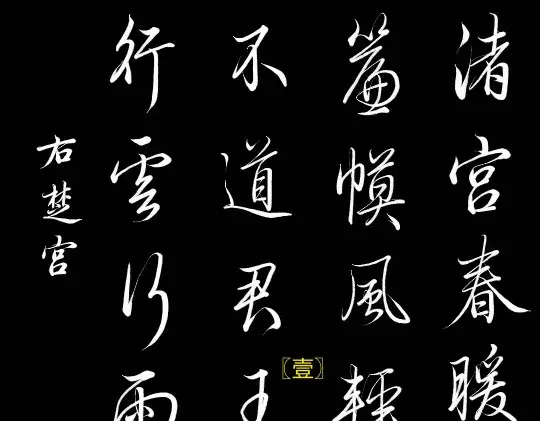 渚宮春暖
簾幙風輕
不道君王
行雲行雨
右楚宮
〖壹〗